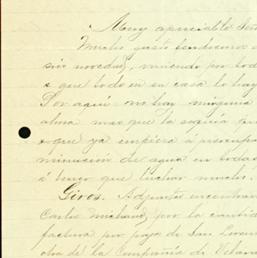 Muy apreciable Señ
Mucho gusto tendremos
sin novedad, miendo por tod
s que todo en su casa lo hay
Por aquí no hay ninguna
alma mas que la sequía
que ya empieza a preocupa
minucion de agua en todas
á luego que luchar mucho.
Giros. Adjunto encontrar
Carlos Michaud, por la cantid
factura por paja de San Loren
otra de la Compañía de